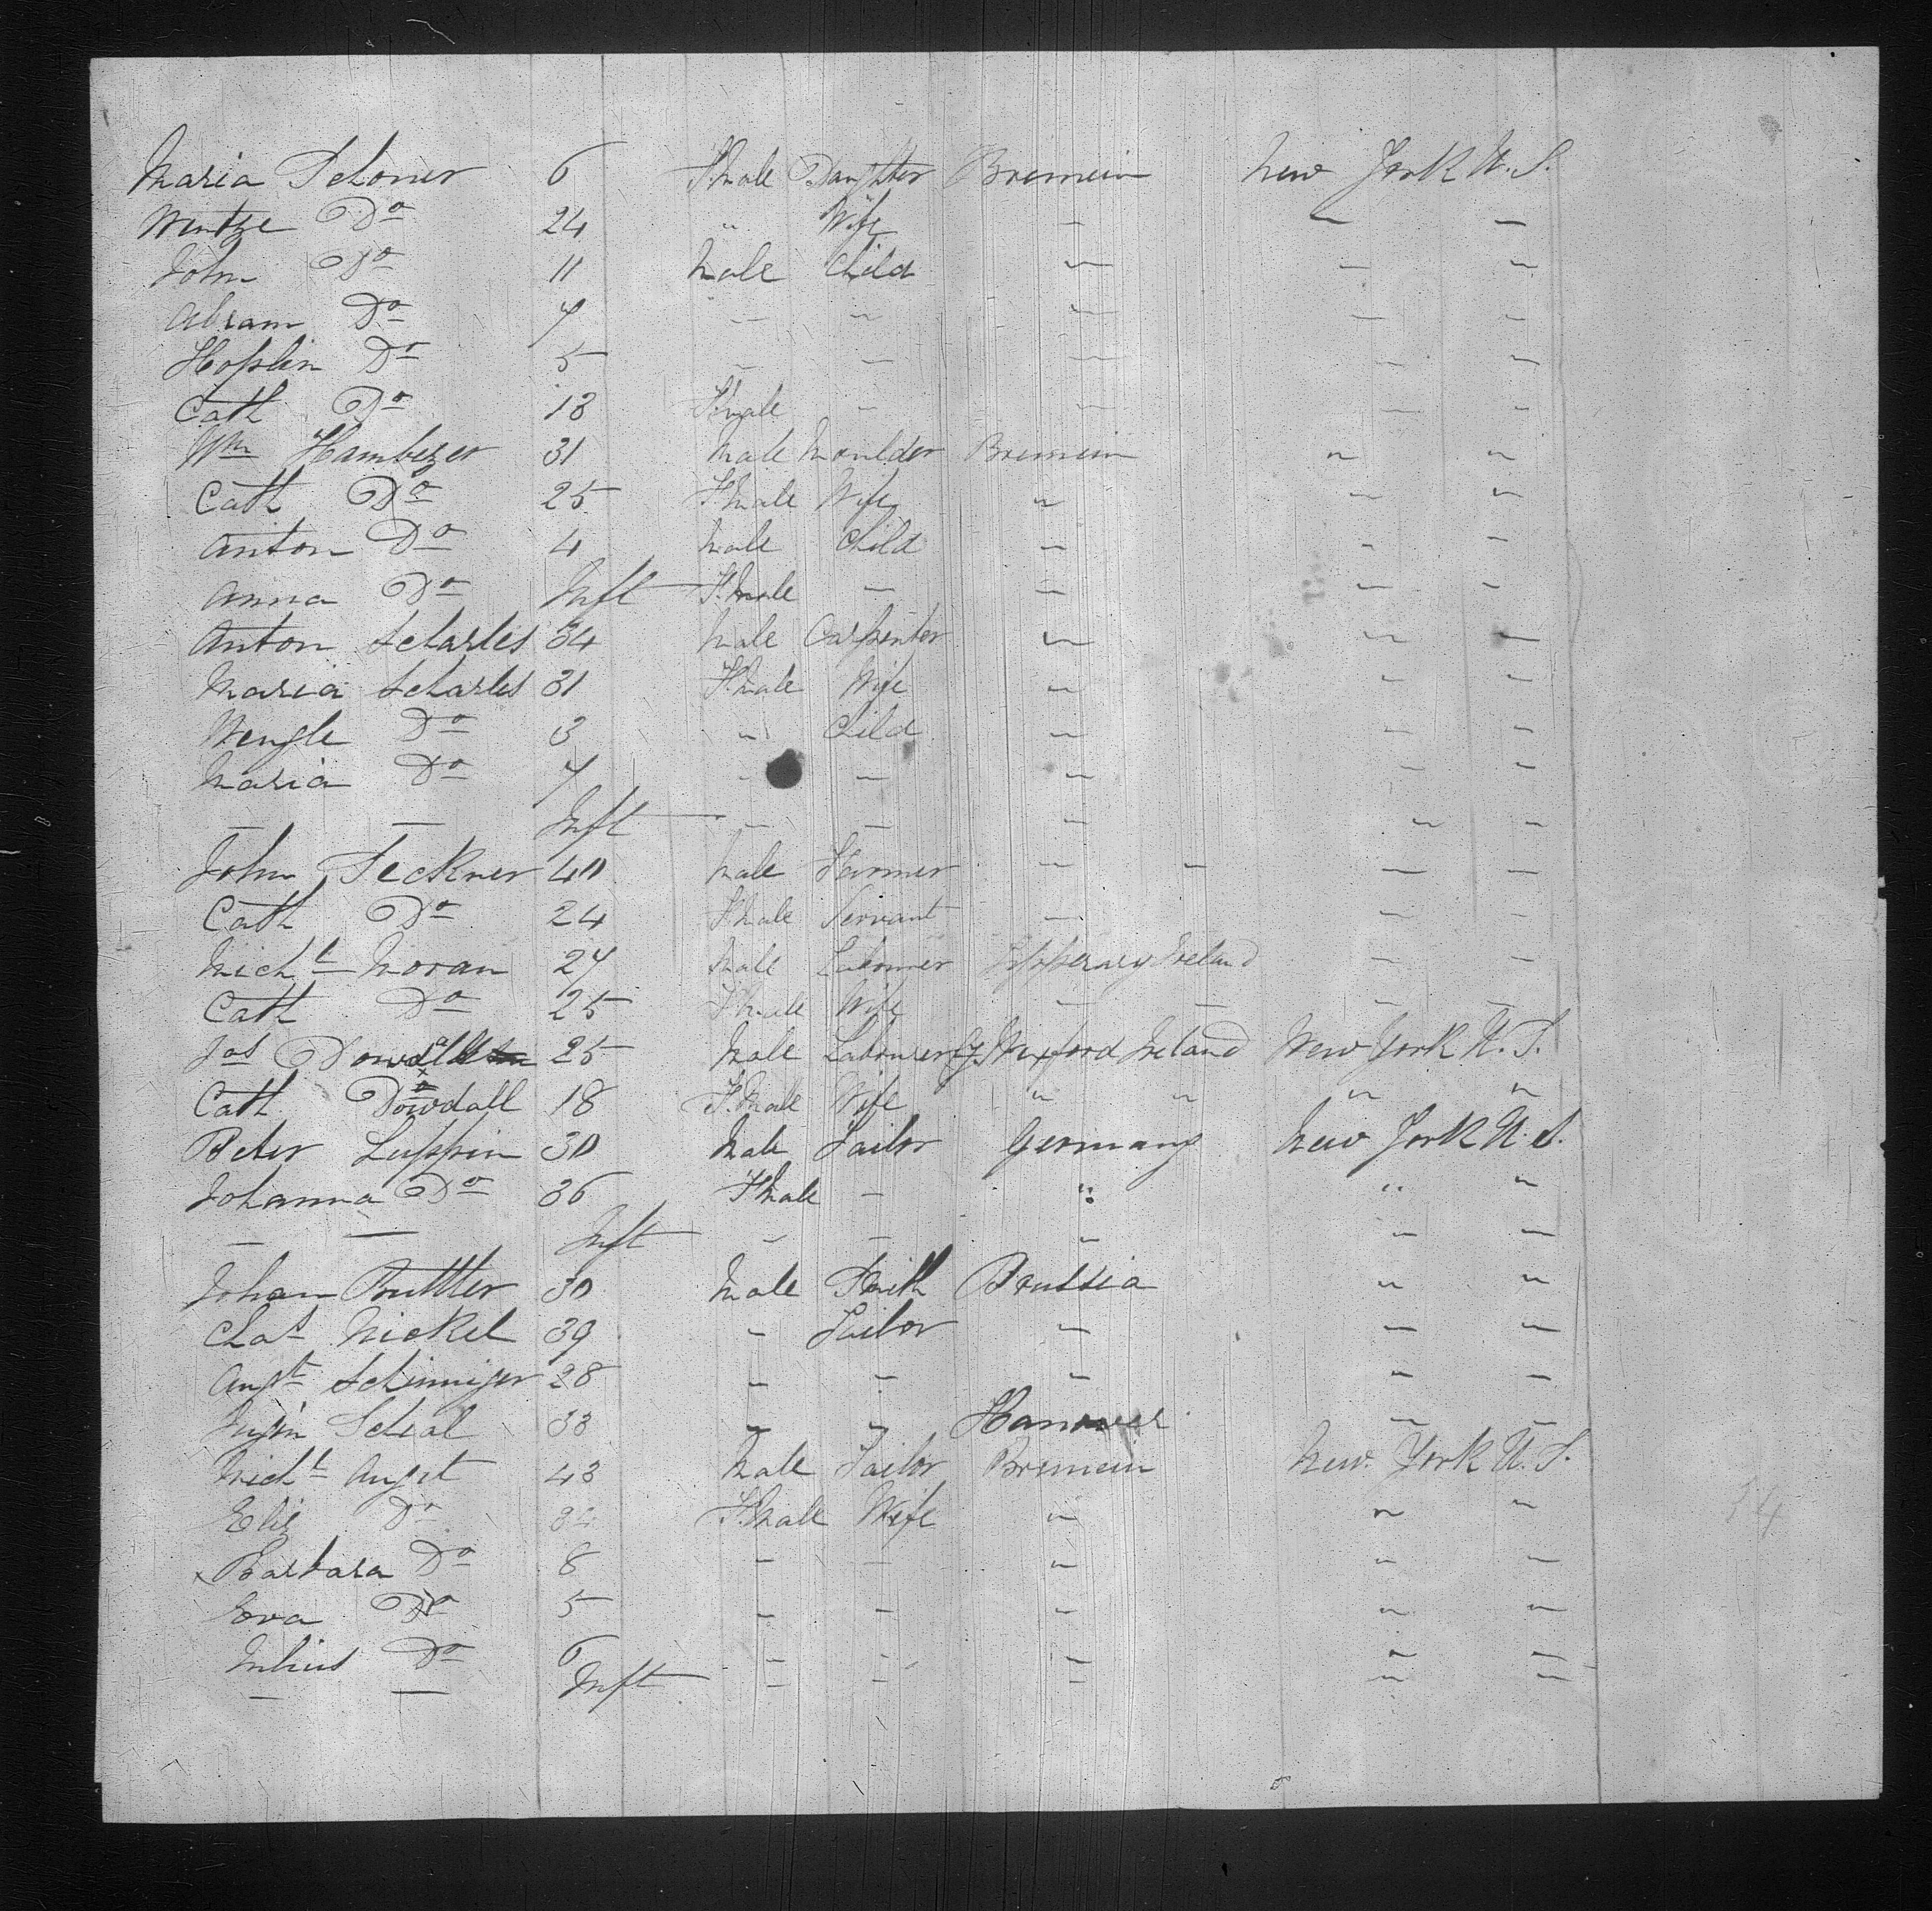 Maria Schoner 6 F.male Daughter Bremein New York U.S.
Wentze Do 24 " Wife " " "
John Do 11 Male Child " " "
Abram Do 7 " " " " "
Hoplin Do 5 " " " " "
Cath Do 13 F.male " " " "
Wm Hamberger 31 Male Moulder Bremein " "
Cath Do 25 F.male Wife " " "
Anton Do 4 Male Child " " "
Anna Do Inft F.male " " " "
Anton Scharles 34 Male Carpenter " " "
Maria Scharles 31 F.male Wife " " "
Wengle Do 3 " Child " " "
Maria Do 7 " " " " "
— — Inft " " " " "
John Feckner 40 Male Farmer " " " "
Cath Do 24 F.male Servant " " "
Michl Moran 27 Male Labourer Tipperary Ireland " "
Cath Do 25 F.male Wife " " " "
Jas Dowdall 25 Male Labourer Cy Wexford Ireland New York U.S.
Cath Dowdall 18 F.male Wife " " " "
Peter Luppin 30 Male Tailor Germany New York U.S.
Johanna Do 36 F.male " " " "
— — Inft " " " " "
Johan Buttler 30 Male Smith Prussia " "
Chas Nickel 39 " Tailor " " "
Augt Schinniger 28 " " " " "
Schal 33 " " Hanover " "
Michl Augst 43 Male Tailor Bremein New York U.S.
Eliz Do 34 F.male Wife " " "
x Barbara Do 8 " " " " "
Eva Do 5 " " " " "
Julius Do 6 " " " " "
— — Inft " " " " "
14